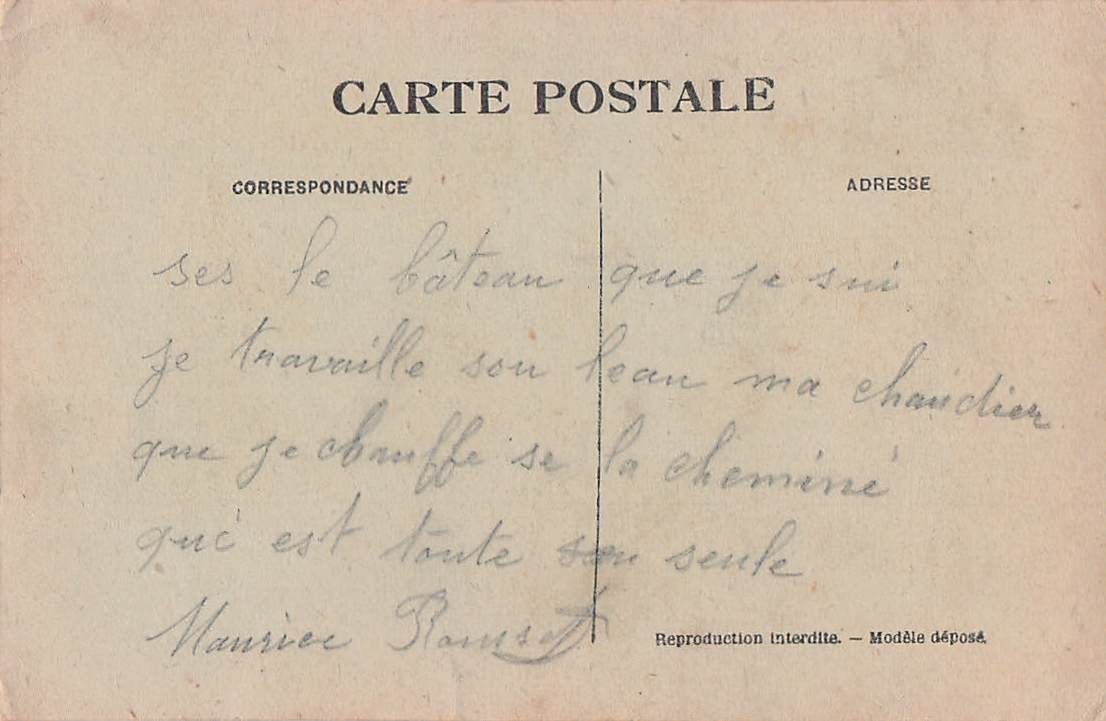 CARTE POSTALE
CORRESPONDANCE
ADRESSE
ses le bâteau que je sui
je travaille sou leau ma chaudier
que je chauffe se la cheminé
qui est toute seule
Maurice
Reproduction interdite. — Modèle déposé.